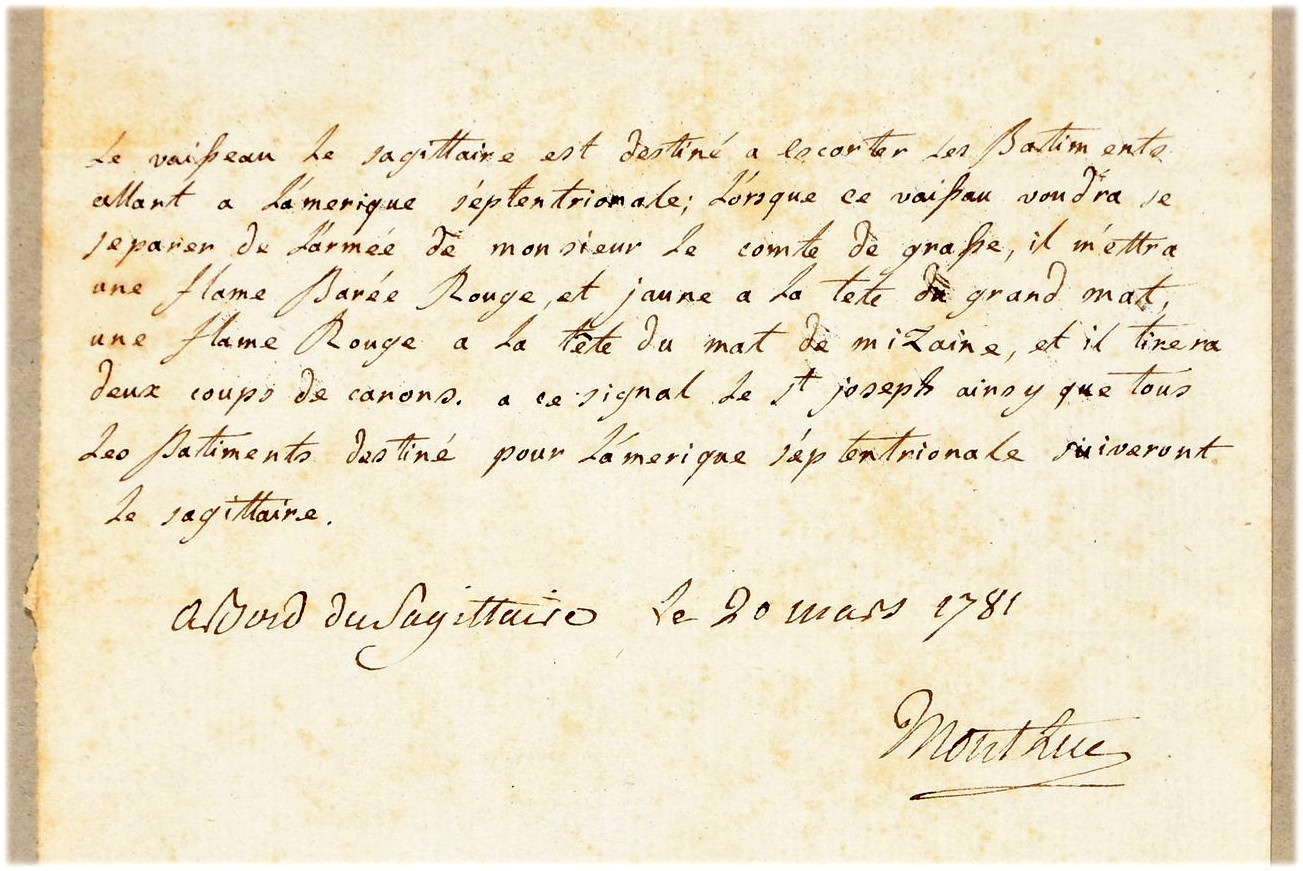 Le vaisseau Le sagittaire est destiné a escorter Les Batiments
allant a L'ámerique séptentrionale; Lorsque ce vaissau voudra se
separer de L'armée de monsieur Le comte de grasse, il méttra
une flame Barée Rouge, et jaune a La tete du grand mat,
une flame Rouge a La tête du mat de miZaine, et il tirera
deux coups de canons. a ce signal Le St joseph ainsy que tous
Les Batiments destiné pour L'ámerique séptentrionale suiveront
Le sagittaire.
a Bord du Sagittaire Le 20 mars 1781
MontLuc